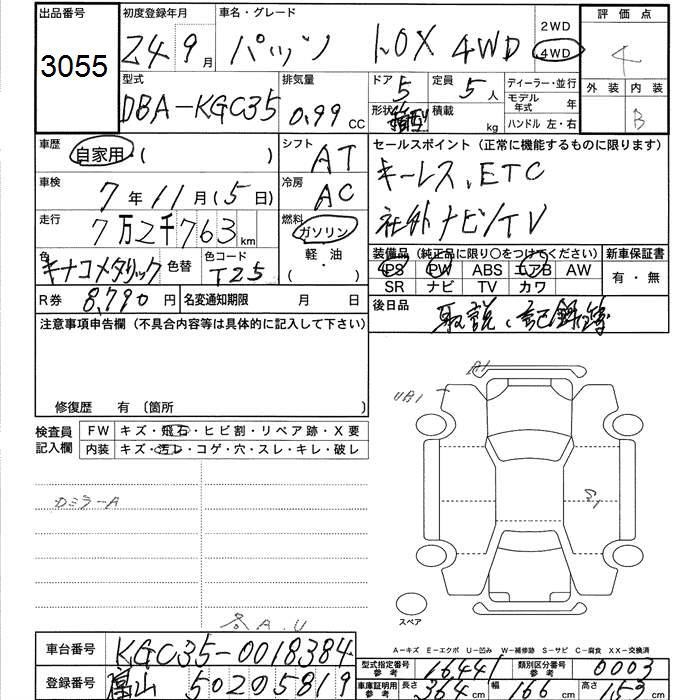 出品番号 初度登録年月 車名・グレード 2WD 評価点
3055 24 9月 パッソ 1.0X 4WD 4WD 4
型式 排気量 ドア 5 定員 5人 ディーラー・並行 外装 内装
モデル年式 年
DBA-KGC35 0.99 CC 形状 箱型 積載 kg ハンドル 左・右 B
車歴 自家用・( ) シフト AT セールスポイント(正常に機能するものに限ります)
キーレス、ETC
車検 7年11月(5日) 冷房 AC
社外ナビ/TV
走行 7万2千763km 燃料 ガソリン
軽・油
・( )
装備品(純正品に限り○をつけてください) 新車保証書
色 キナコメタリック 色替 色コード T25
PS PW ABS エアB AW 有・無
SR ナビ TV カワ
R券 8,790円 名変通知期限 月 日
後日品 取説、記録簿
注意事項申告欄(不具合内容等は具体的に記入して下さい)
修復歴 有〔箇所 〕
検査員記入欄 FW キズ・飛石・ヒビ割・リペア跡・X要
内装 キズ・汚レ・コゲ・穴・スレ・キレ・破レ
A1
UA1
カミラーA
S1
各A.U
スペア
A-キズ E-エクボ U-凹み W-補修跡 S-サビ C-腐食 XX-交換済
車台番号 KGC35-0018384
型式指定番号参考 16441 類別区分番号参考 0003
登録番号 富山 502 5819
車庫証明用参考 長さ 364cm 幅 166cm 高さ 153cm